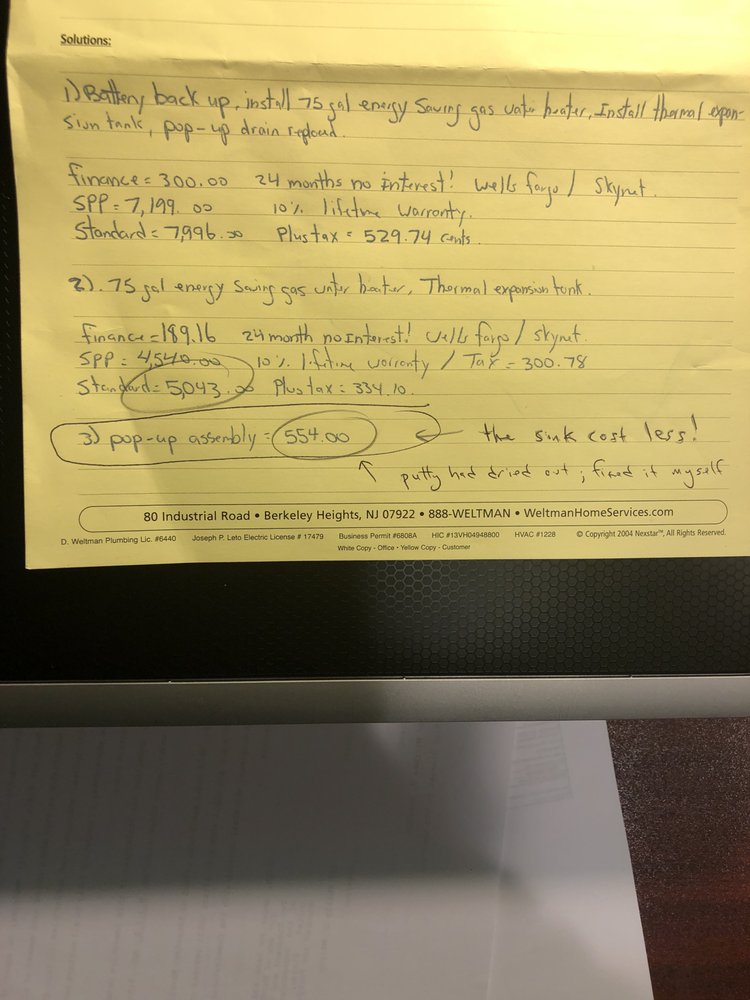 Solutions:
1) Battery back up, install 75 gal energy saving gas water heater, Install thermal expan-
sion tank, pop-up drain replaced.
finance = 300.00 24 months no interest! wells fargo / skynet.
SPP = 7,199.00 10% lifetime warranty.
Standard = 7,996.00 Plus tax = 529.74 cents.
2). 75 gal energy saving gas water heater, Thermal expansion tank.
finance = 189.16 24 month no Interest! wells fargo / skynet.
SPP = 4,540.00 10% lifetime warranty / Tax = 300.78
Standard = 5,043.00 Plus tax = 334.10.
3) pop-up assembly = 554.00 ← the sink cost less!
↑ putty had dried out; fixed it myself
80 Industrial Road • Berkeley Heights, NJ 07922 • 888-WELTMAN • WeltmanHomeServices.com
D. Weltman Plumbing Lic. #6440 Joseph P. Leto Electric License # 17479 Business Permit #6808A HIC #13VH04948800 HVAC #1228 © Copyright 2004 Nexstar™, All Rights Reserved.
White Copy - Office • Yellow Copy - Customer